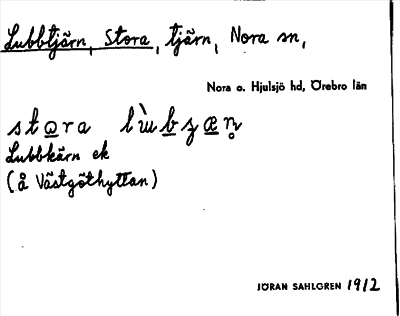 Lubbtjärn, Stora, tjärn, Nora sn,
Nora o. Hjulsjö hd, Örebro län
stɷra
Lubbkärn ek
(å Västgöthyttan)
JÖRAN SAHLGREN 1912